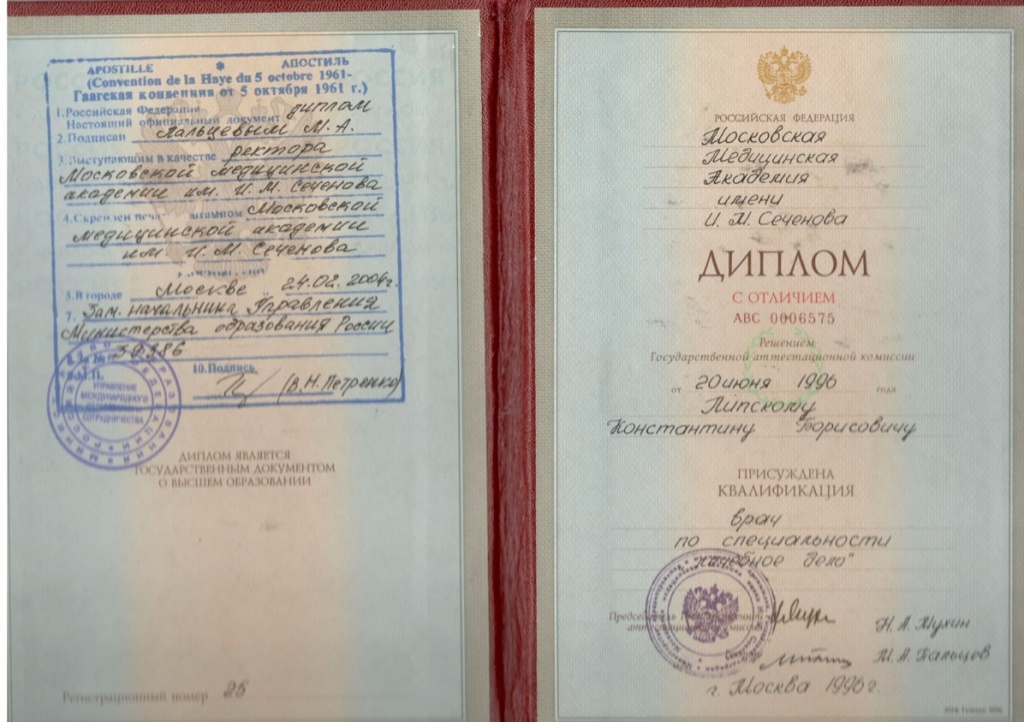 APOSTILLE * АПОСТИЛЬ
(Convention de la Haye du 5 octobre 1961-
Гаагская конвенция от 5 октября 1961 г.)
1. Российская Федерация
Настоящий официальный документ диплом
2. Подписан Пальцевым М.А.
3. Выступающим в качестве ректора
Московской медицинской
академии им. И.М. Сеченова
4. Скреплен штампом Московской
медицинской академии
им. И.М. Сеченова
5. В городе Москве 24.02.
7. Зам. начальника Управления
Министерства образования России
10. Подпись
(В.Н. Петренко)
УПРАВЛЕНИЕ
МЕЖДУНАРОДНОГО
СОТРУДНИЧЕСТВА
ДИПЛОМ ЯВЛЯЕТСЯ
ГОСУДАРСТВЕННЫМ ДОКУМЕНТОМ
О ВЫСШЕМ ОБРАЗОВАНИИ
Регистрационный номер 25
РОССИЙСКАЯ ФЕДЕРАЦИЯ
Московская
Медицинская
Академия
имени
И. М. Сеченова
ДИПЛОМ
С ОТЛИЧИЕМ
АВС 0006575
Решением
Государственной аттестационной комиссии
от 20 июня 1996 года
Липскому
Константину Борисовичу
ПРИСУЖДЕНА
КВАЛИФИКАЦИЯ
врач
по специальности
"лечебное дело"
Председатель Государственной
аттестационной комиссии
Н. А. Мухин
М. А. Пальцев
г. Москва 1996 г.